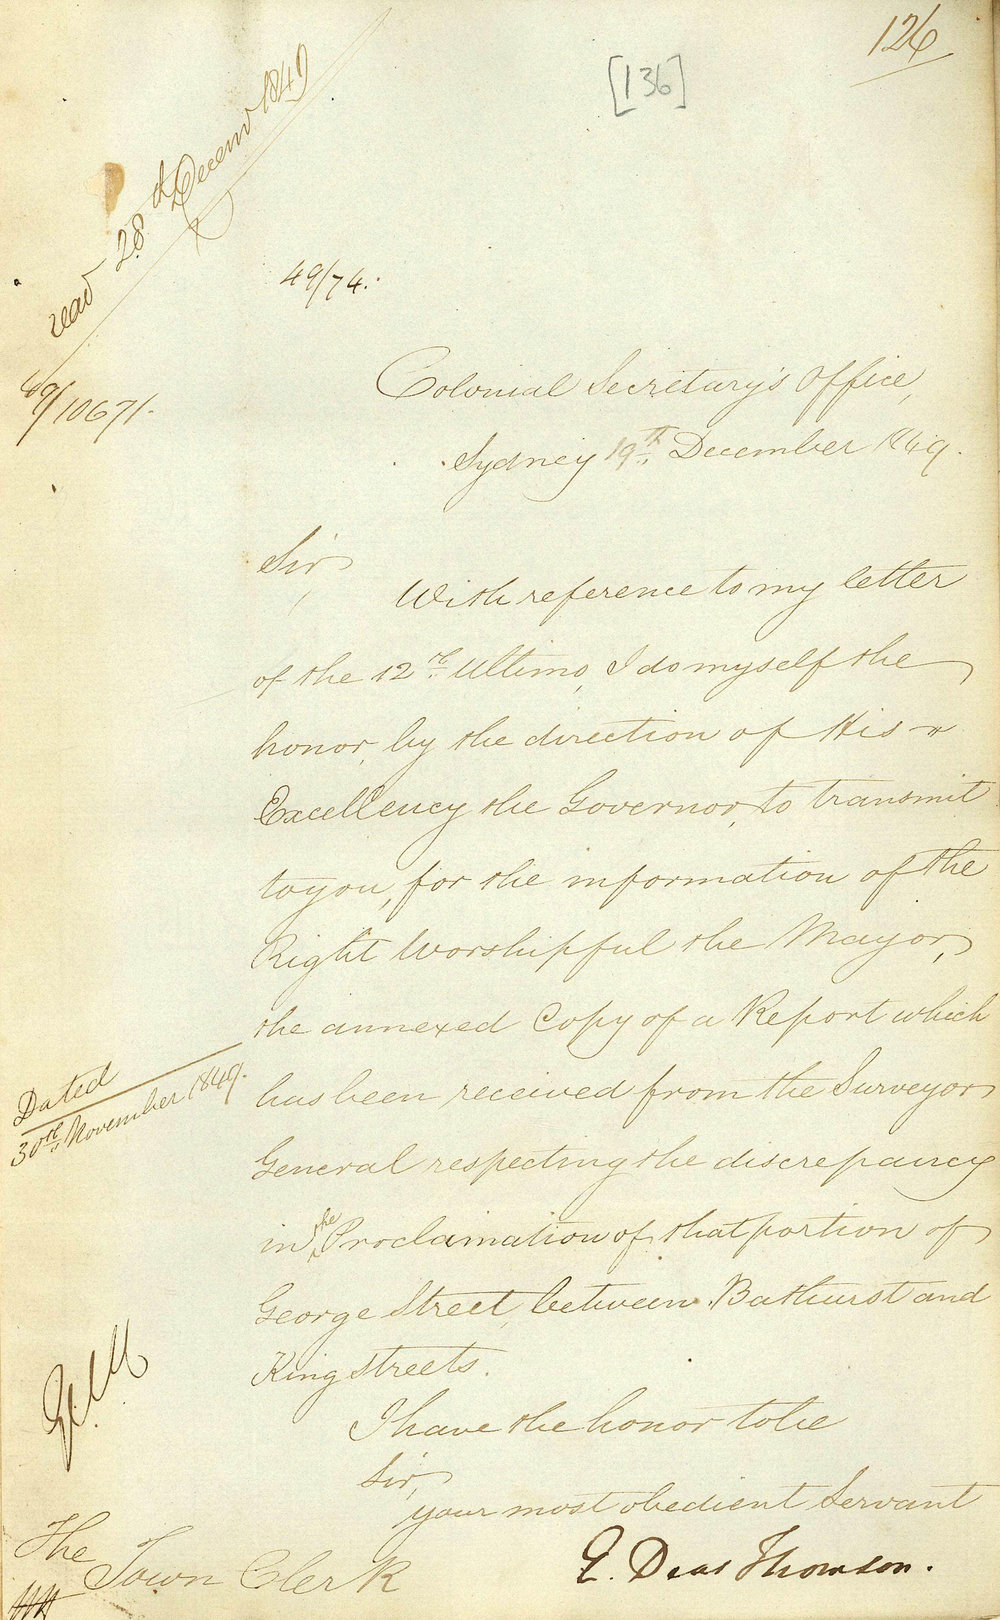 126
[136]
read 28th Decemr 1849
49/74.
49/10671.
Colonial Secretary's Office,
Sydney 19th December 1849.
Sir,
With reference to my letter
of the 12th Ultimo, I do myself the
honor, by the direction of His
Excellency the Governor, to transmit
to you, for the information of the
Right Worshipful the Mayor,
the annexed Copy of a Report which
Dated
30th November 1849.
has been received from the Surveyor
General respecting the discrepancy
in the Proclamation of that portion of
George Street, between Bathurst and
King Streets.
I have the honor to be
Sir,
your most obedient Servant
E. Deas Thomson.
The
Town Clerk